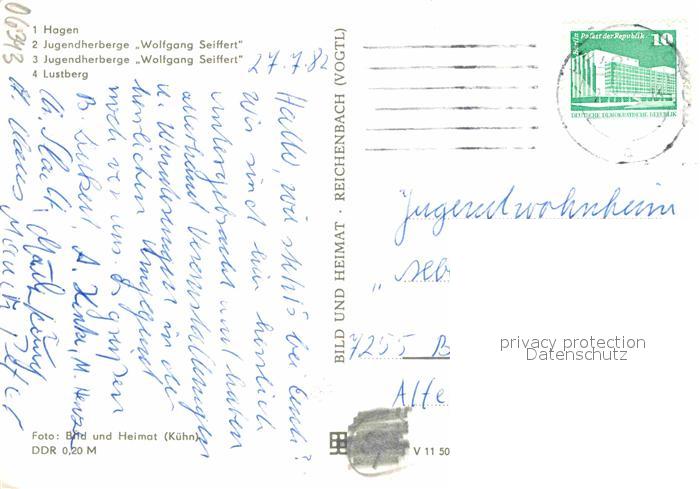 06343
1 Hagen
2 Jugendherberge „Wolfgang Seiffert"
3 Jugendherberge „Wolfgang Seiffert"
4 Lustberg
27.7.82
Hallo, wie sehts bei Euch?
Wir sind hier herrlich
untergebracht und haben
allerhand Veranstaltungen
u. Wanderungen in der
herrlichen Umgebung
noch vor uns. Es grüßen
B. A. M.
Foto: Bild und Heimat (Kühn)
DDR 0,20 M
BILD UND HEIMAT · REICHENBACH (VOGTL)
V 11 50
Berlin Palast der Republik 10
DEUTSCHE DEMOKRATISCHE REPUBLIK
Jugendwohnheim
„Selb
7255 B
Alte
privacy protection
Datenschutz